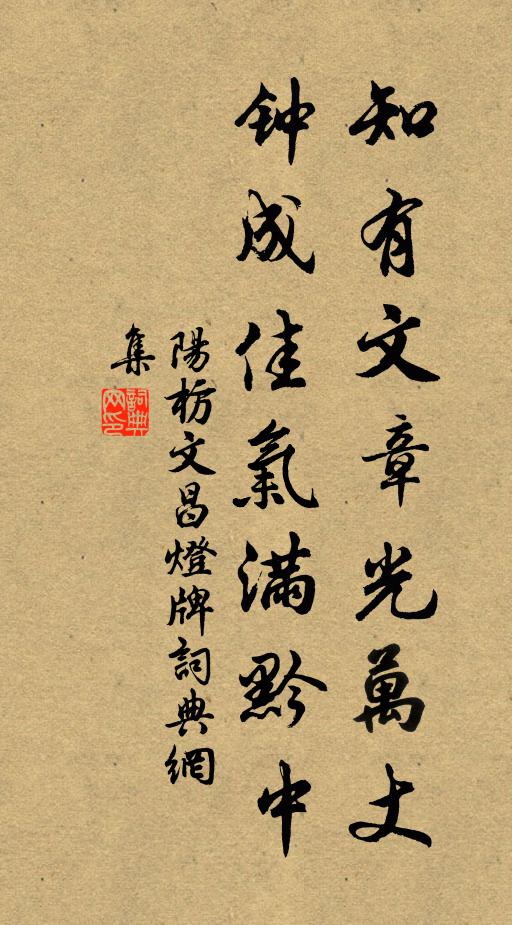 知有文章光萬丈
钟成佳氣滿黔中
陽枋文昌燈牌詞典網
集
詞典网印